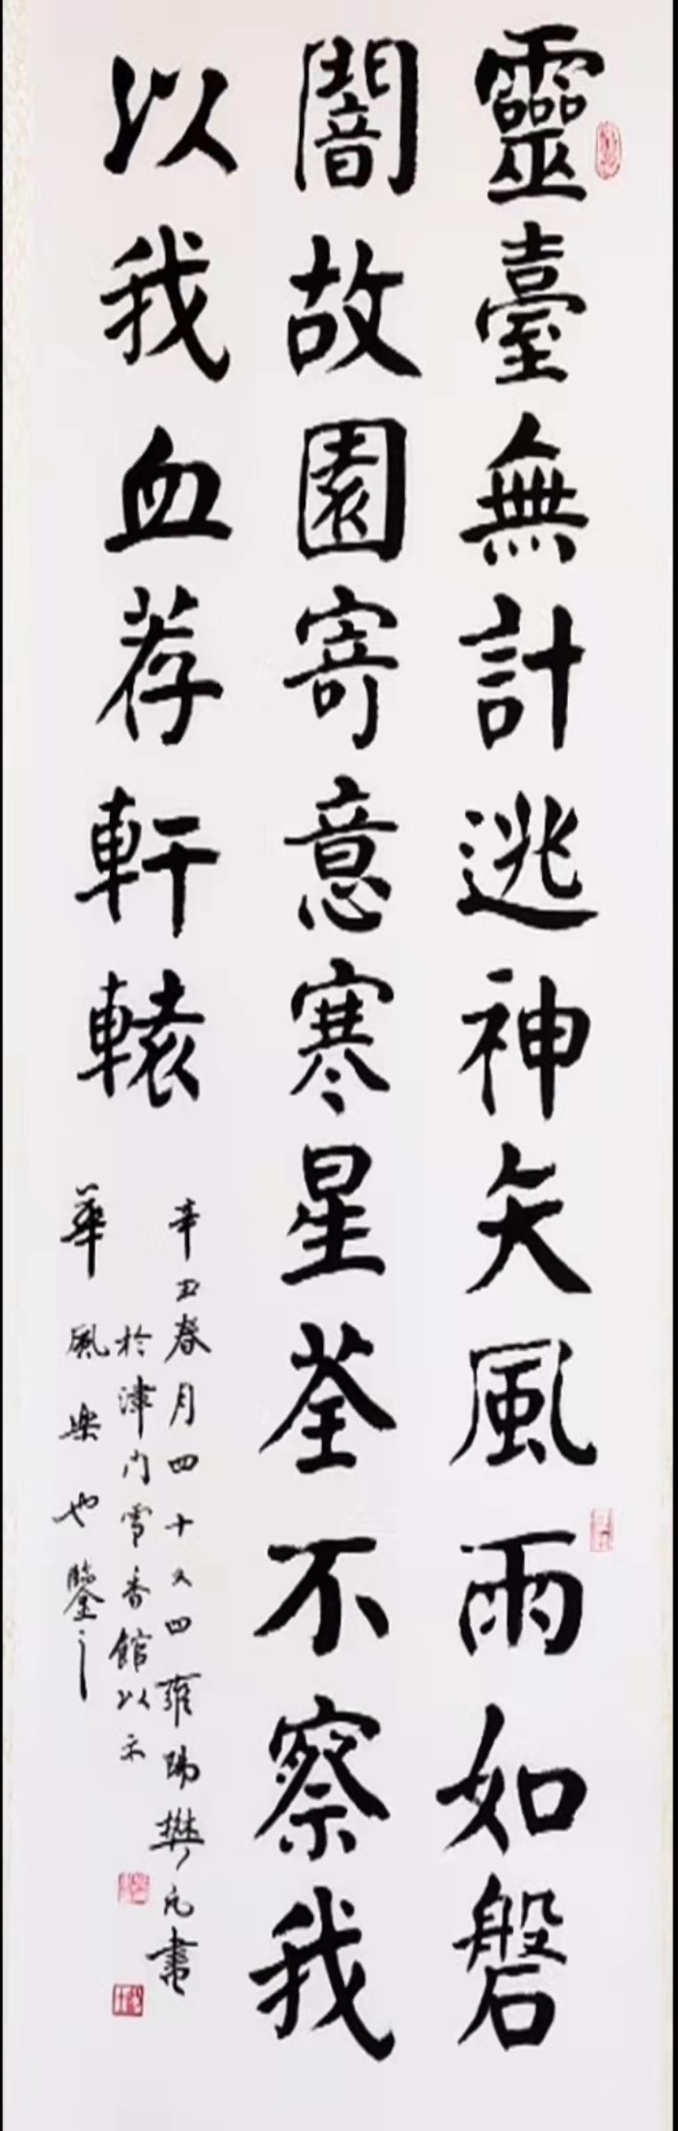 靈臺無計逃神矢風雨如磐
闇故園寄意寒星荃不察我
以我血荐軒轅
辛丑春月四十又四雍陽樊凡書
於津门雪香館以示
華風樂也鑒之